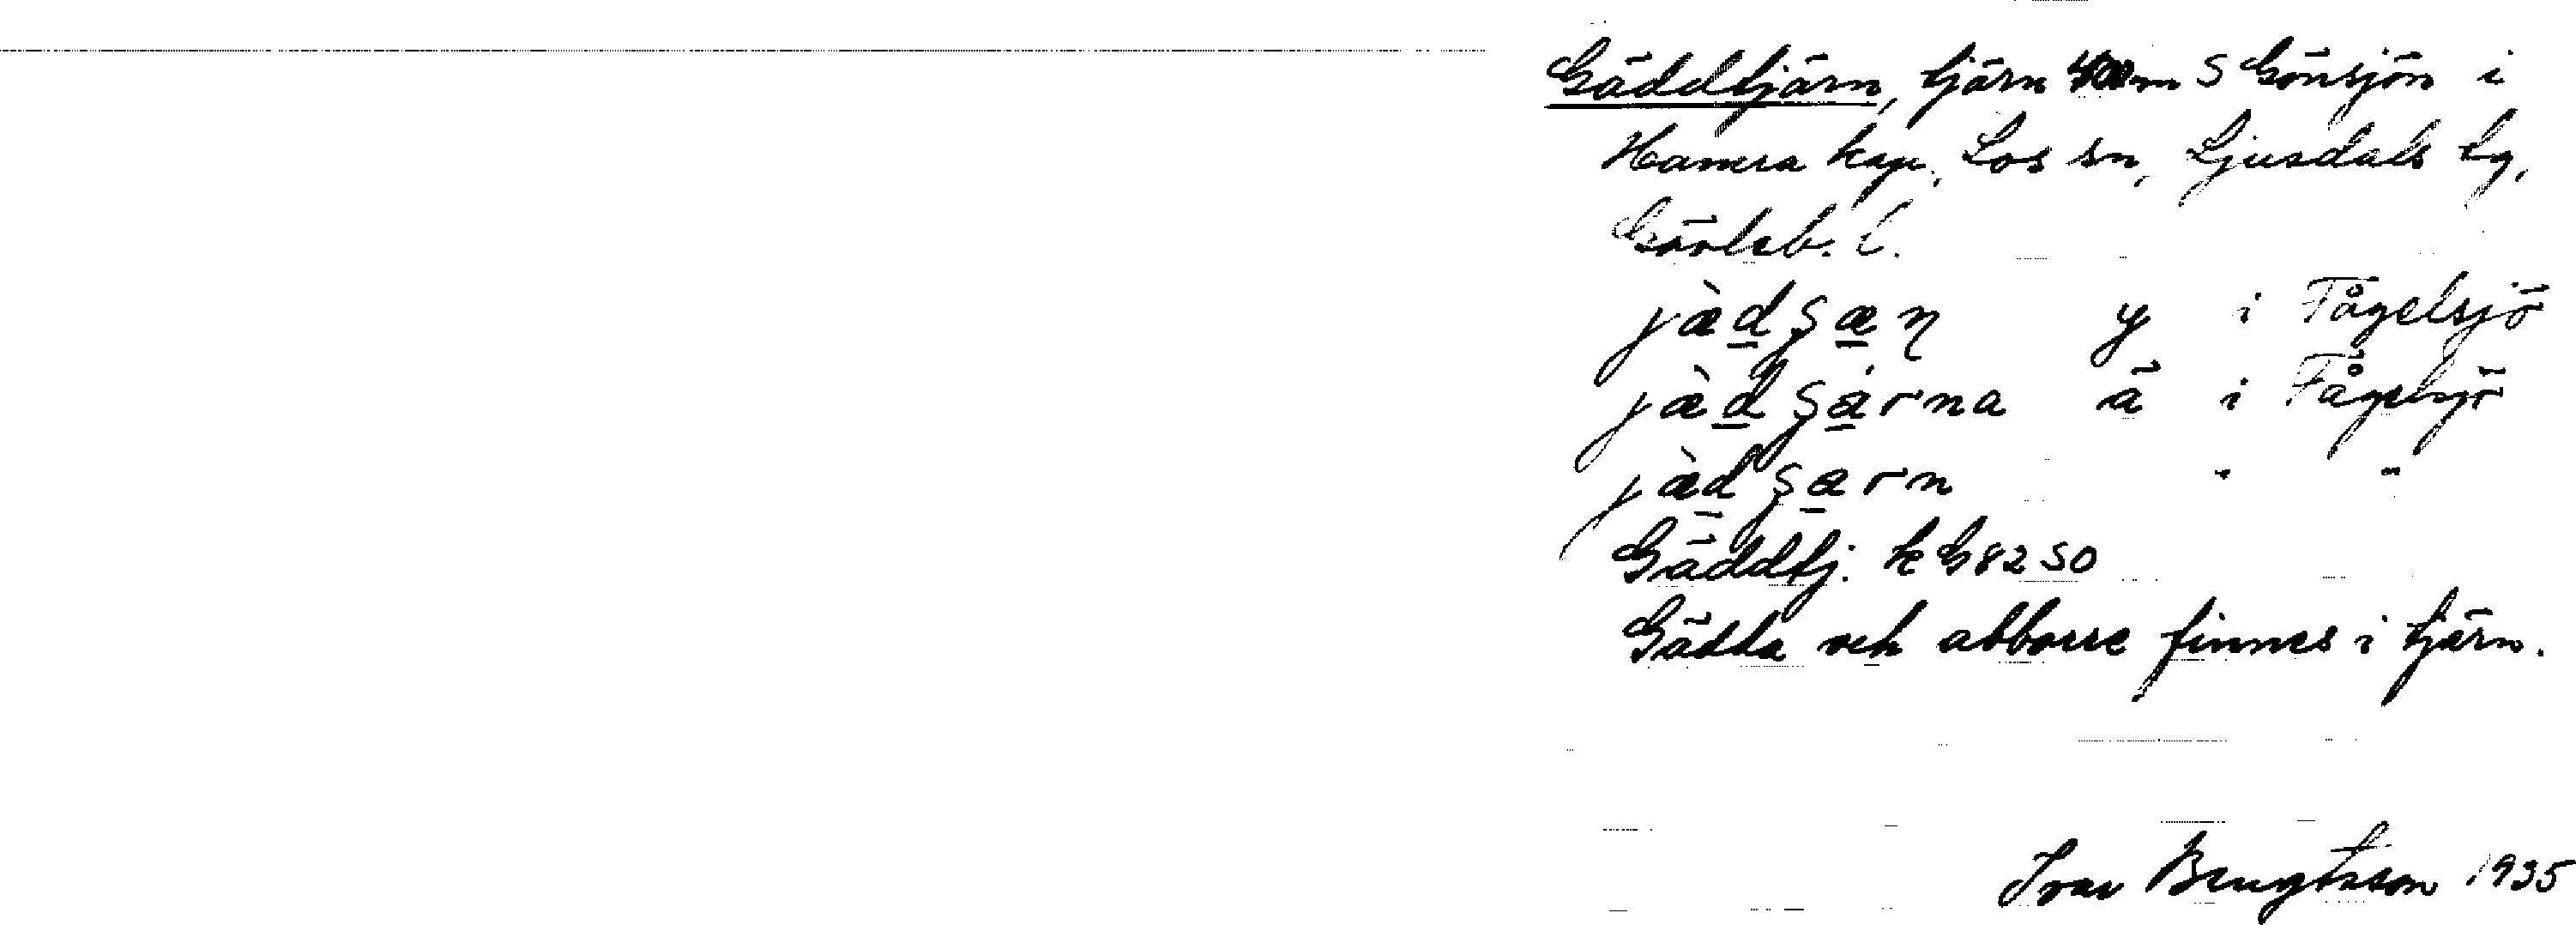 Gäddtjärn, tjärn 400 m S Gönsjön i
Hamra kap., Los sn, Ljusdals tg,
Gävleb. l.
jàdʂæɳ y i Fågelsjö
jàdʂarna ä i Fågelsjö
jàdʂarn " "
Gäddtj. k G82 SO
Gädda och abborre finnes i tjärn.
Ivar Bengtsson 1935